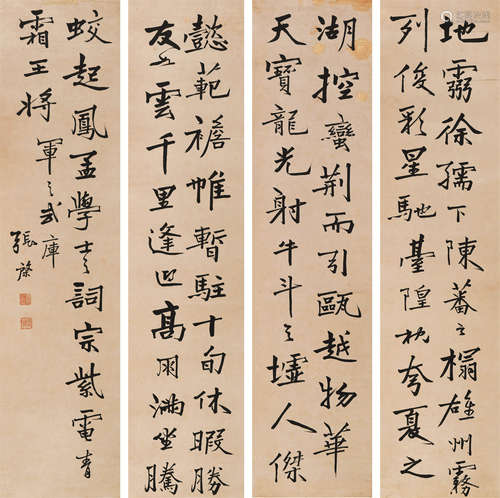 地靈徐孺下陳蕃之榻雄州霧
列俊彩星馳臺隍枕夷夏之
湖控蠻荊而引甌越物華
天寶龍光射牛斗之墟人傑
懿範襜帷暫駐十旬休暇勝
友如雲千里逢迎高朋滿坐騰
蛟起鳳孟學士之詞宗紫電青
霜王將軍之武庫
張